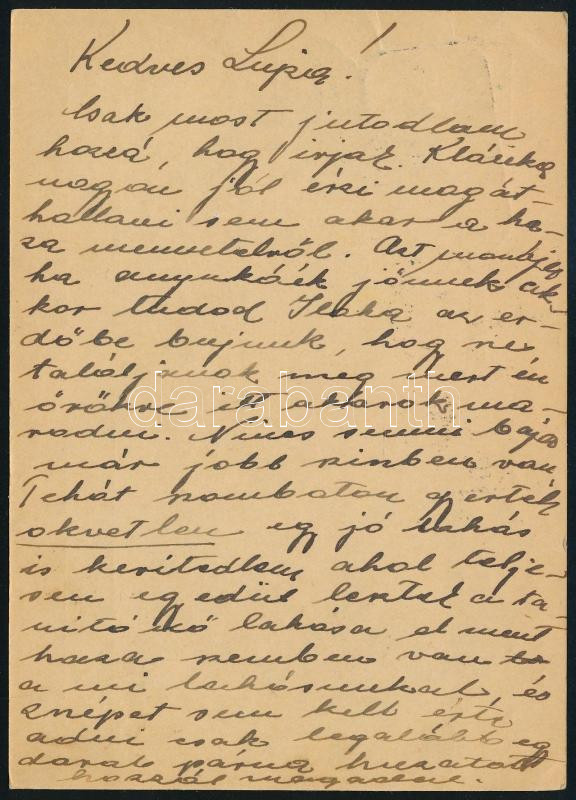 Kedves Lupia!
Csak most jutodtam
hozzá, hog irjaz. Klárika
nagon jól érzi magát
hallani sem akar a ha-
za menetelről. Azt mondja
ha anyukáék jönnek ak-
kor tudod Ilska az er-
dőbe bujunk, hog ne
találjanok meg mert én
örökre itt akarok ma-
radni. Nincs semmi baja
már jobb szinben van
Tehát szombaton gertek
okvetlen eg jó lakás
is keritedtem ahol telje-
sen egedül lesztek a ta-
nitó nő lakása el ment
haza szemben van
a mi lakásunkal, és
sem kell érte
adni csak legalább eg
darab párna huzatot
hozzál magadal.
darabanth